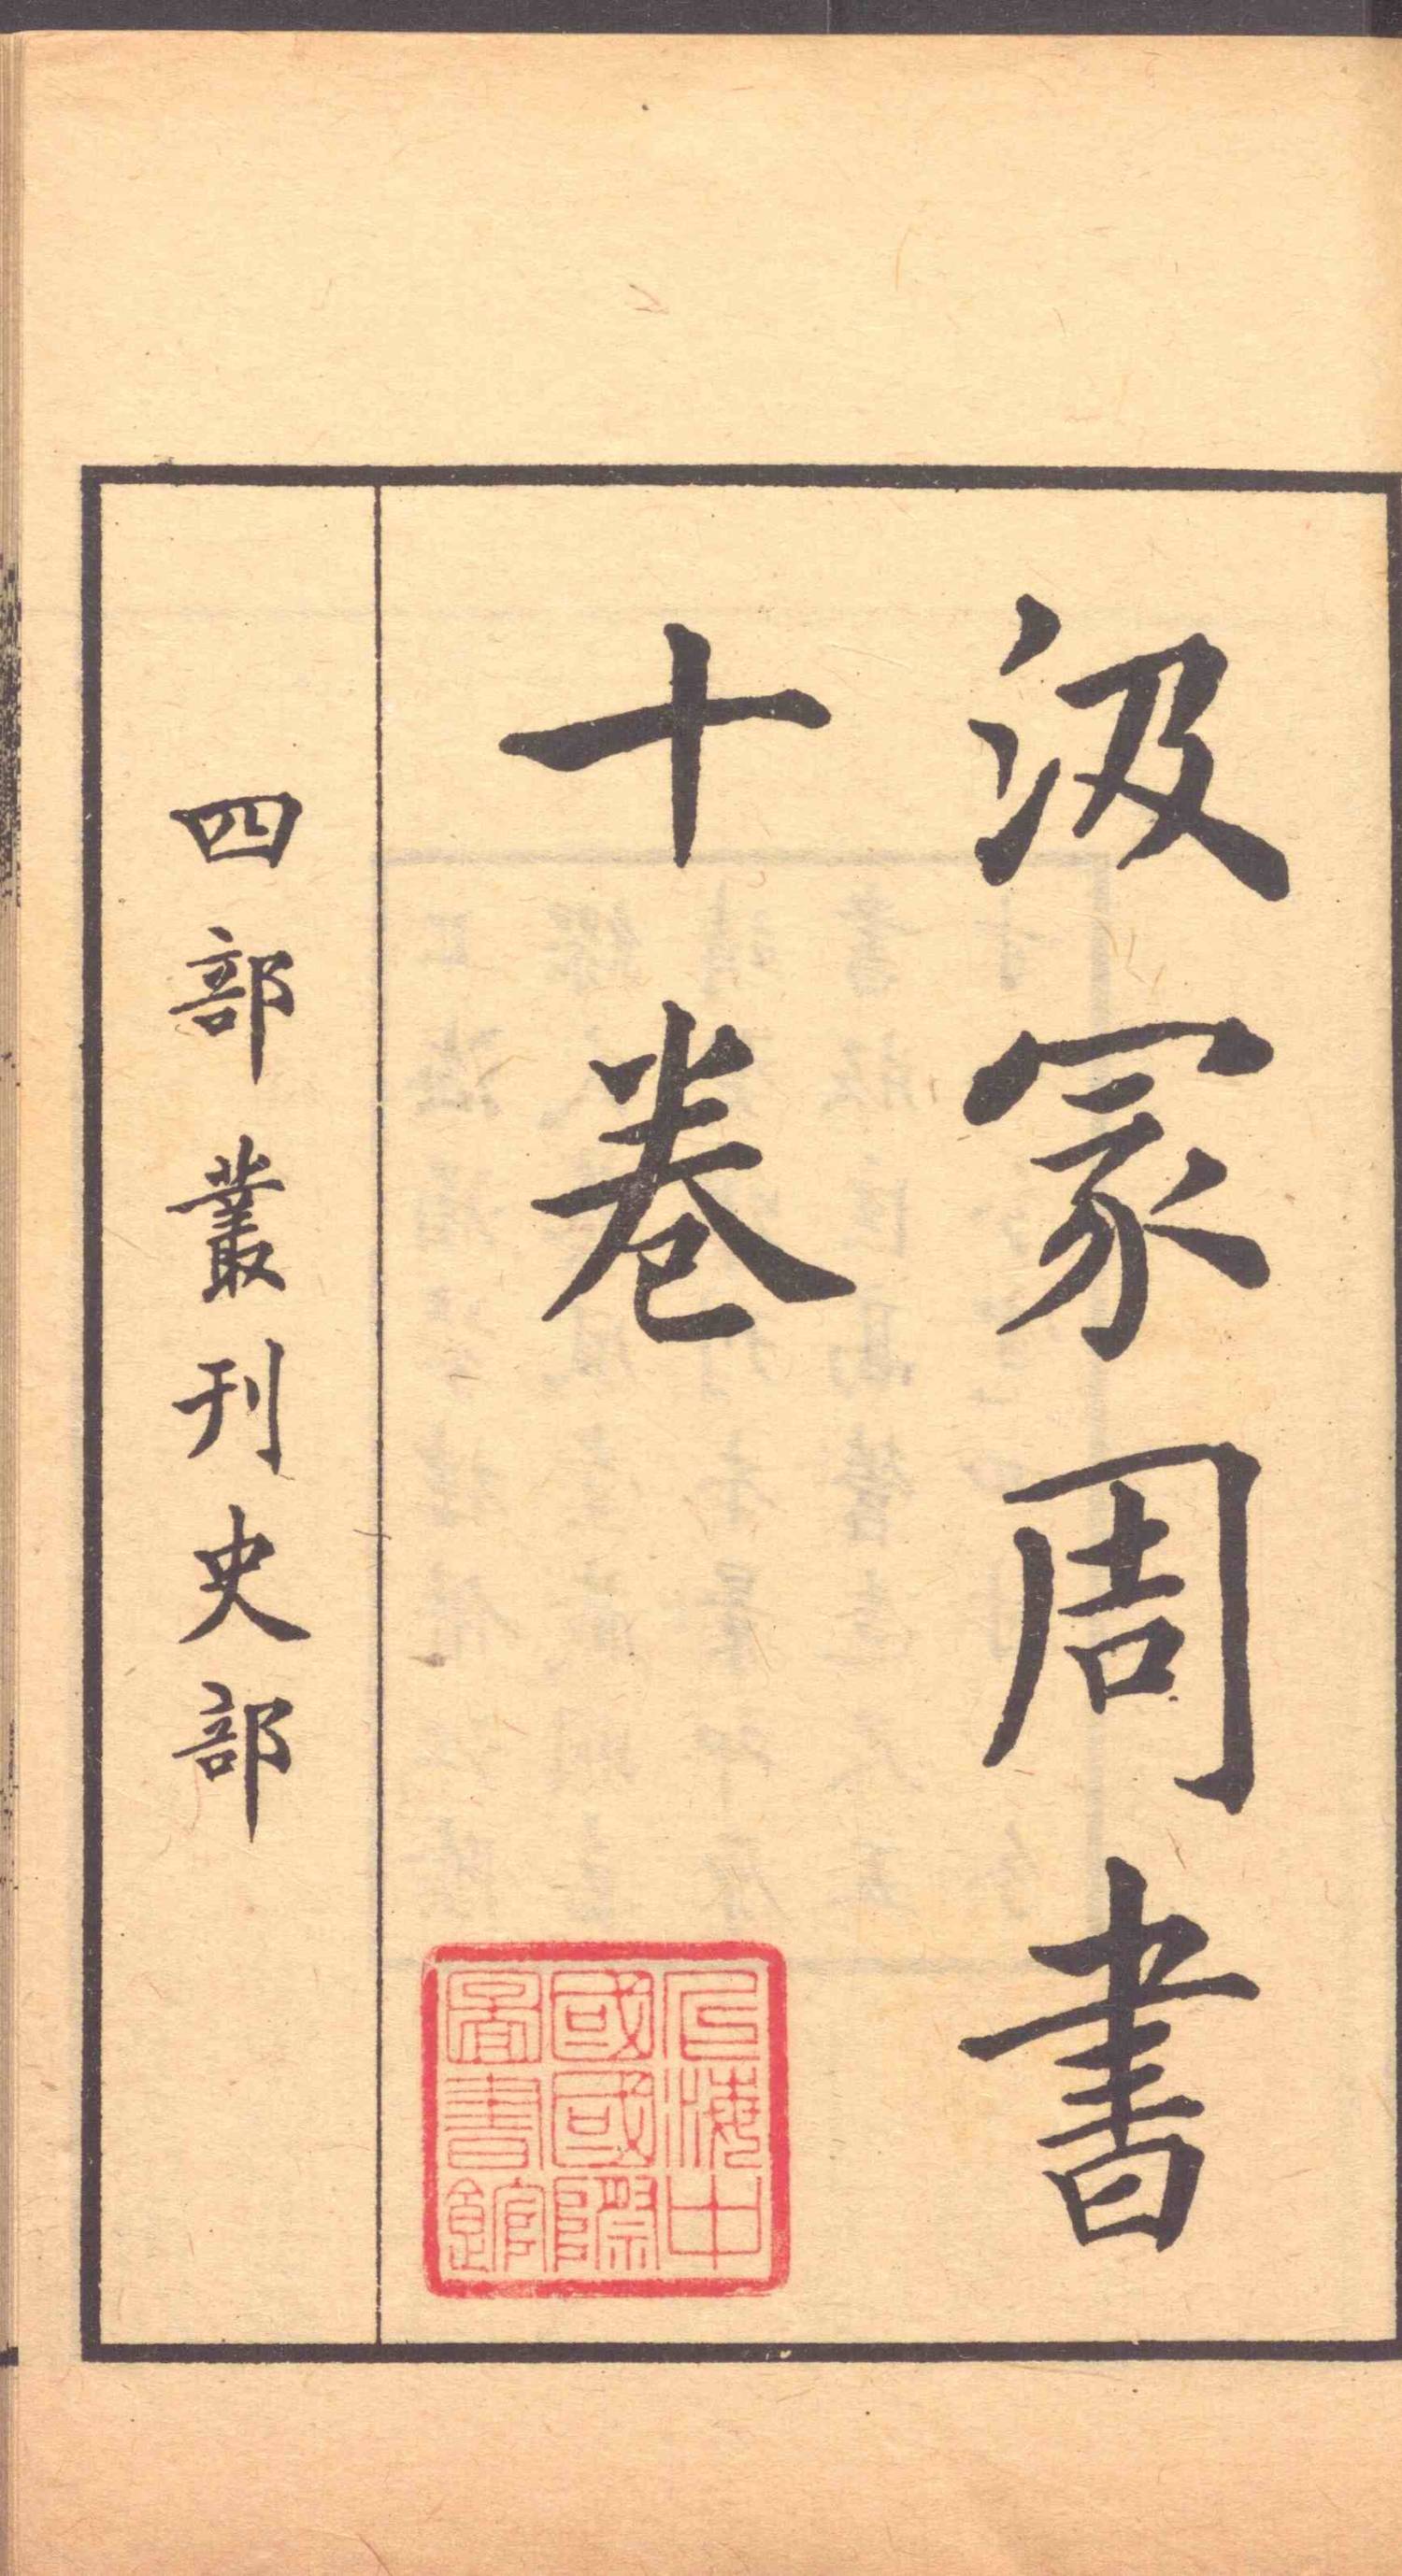 汲冢周書
十卷
四部叢刊史部
上海中
國國際
圖書館